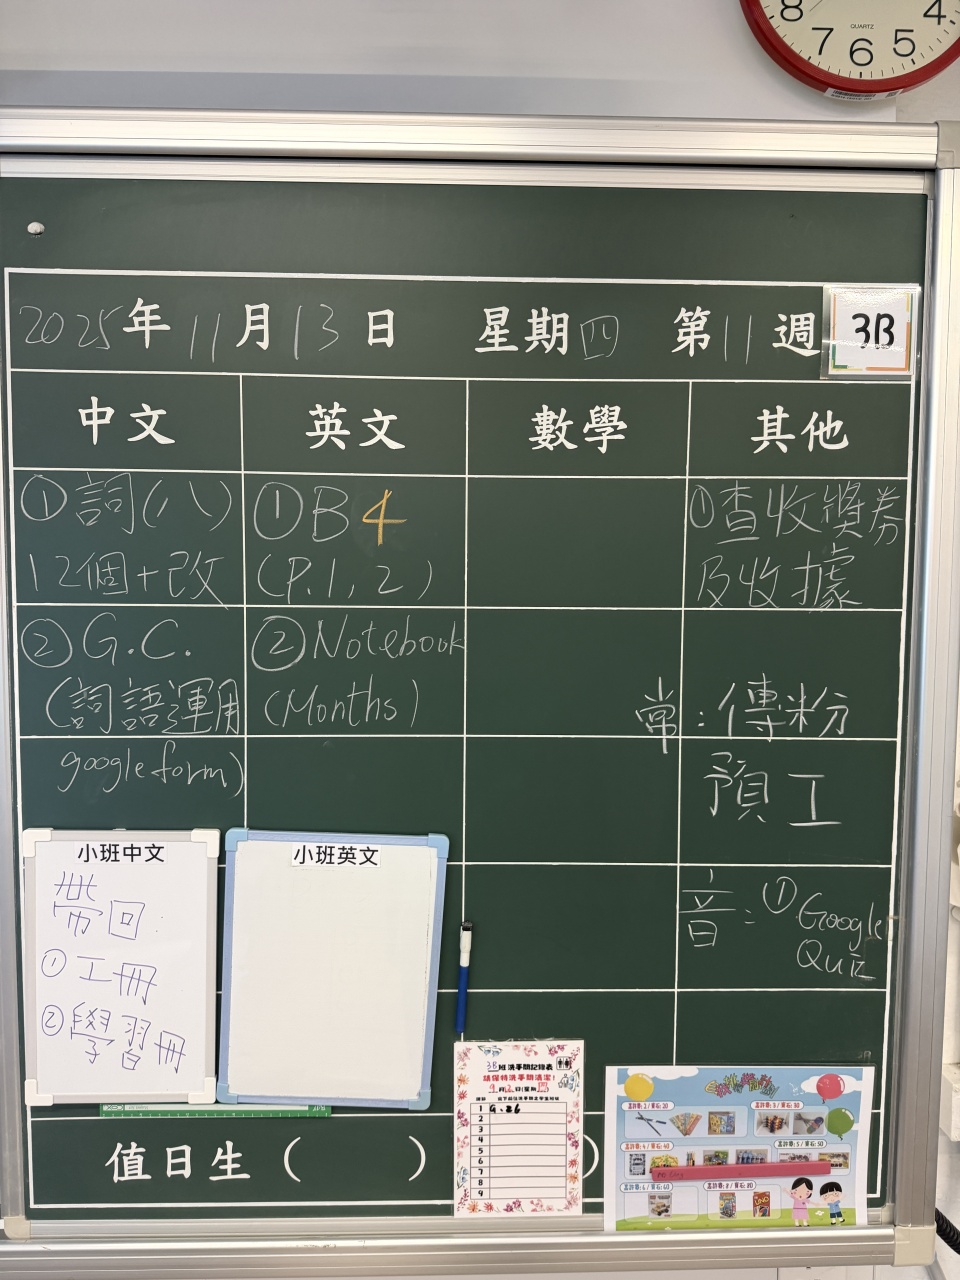 8 7 6 5 4
QUARTZ
2025年11月13日 星期四 第11週 3B
中文 英文 數學 其他
①詞(八)
12個+改
②G.C.
(詞語運用
google form)
①B4
(P.1,2)
②Notebook
(Months)
①查收獎券
及收據
常:傳粉
預工
音:①Google
Quiz
小班中文
帶回:
①工冊
②學習冊
小班英文
值日生( )
3B班洗手間記錄表
請保持洗手間清潔!
1 9.26
2
3
4
5
6
7
8
9